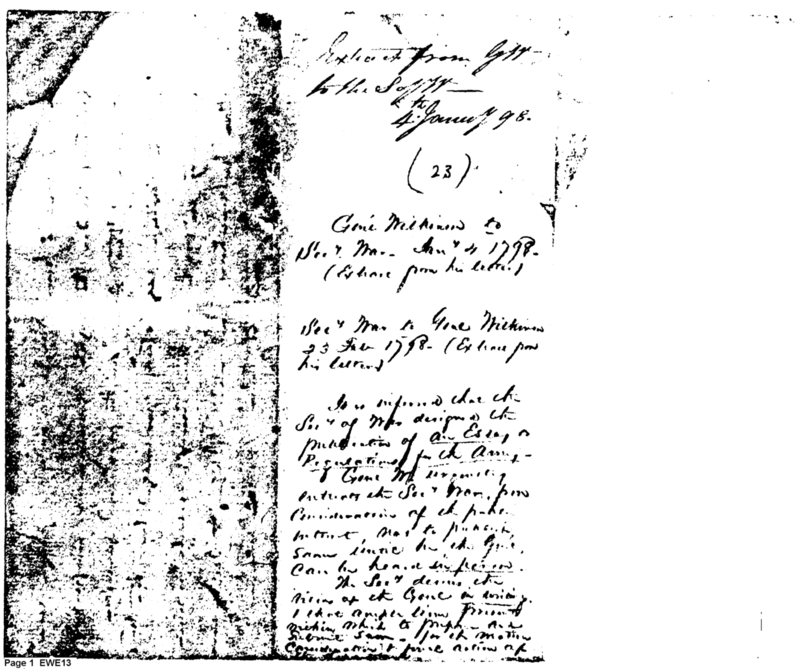 Extract from GW
to the Sof W
4th Januy 98.
(23)
Genl Wilkinson to
Secy War - Jany 4 1798-
(Extract from his letter)
Secy War to Genl Wilkinson
23 Feb 1798- (Extract from
his letter)
It is inferred that the
Secy of War designed the
publication of an Essay on
Regulations for the Army-
Genl W earnestly
entreats the Secy War, from
Consideration of the public
interest, not to publish
same until he, the Genl,
Can be heard in person.
The Secy desires the
views of the Genl in writing.
& there ample time
within which to prepare and
submit same - for the mature
Consideration & final action of
Page 1 EWE13